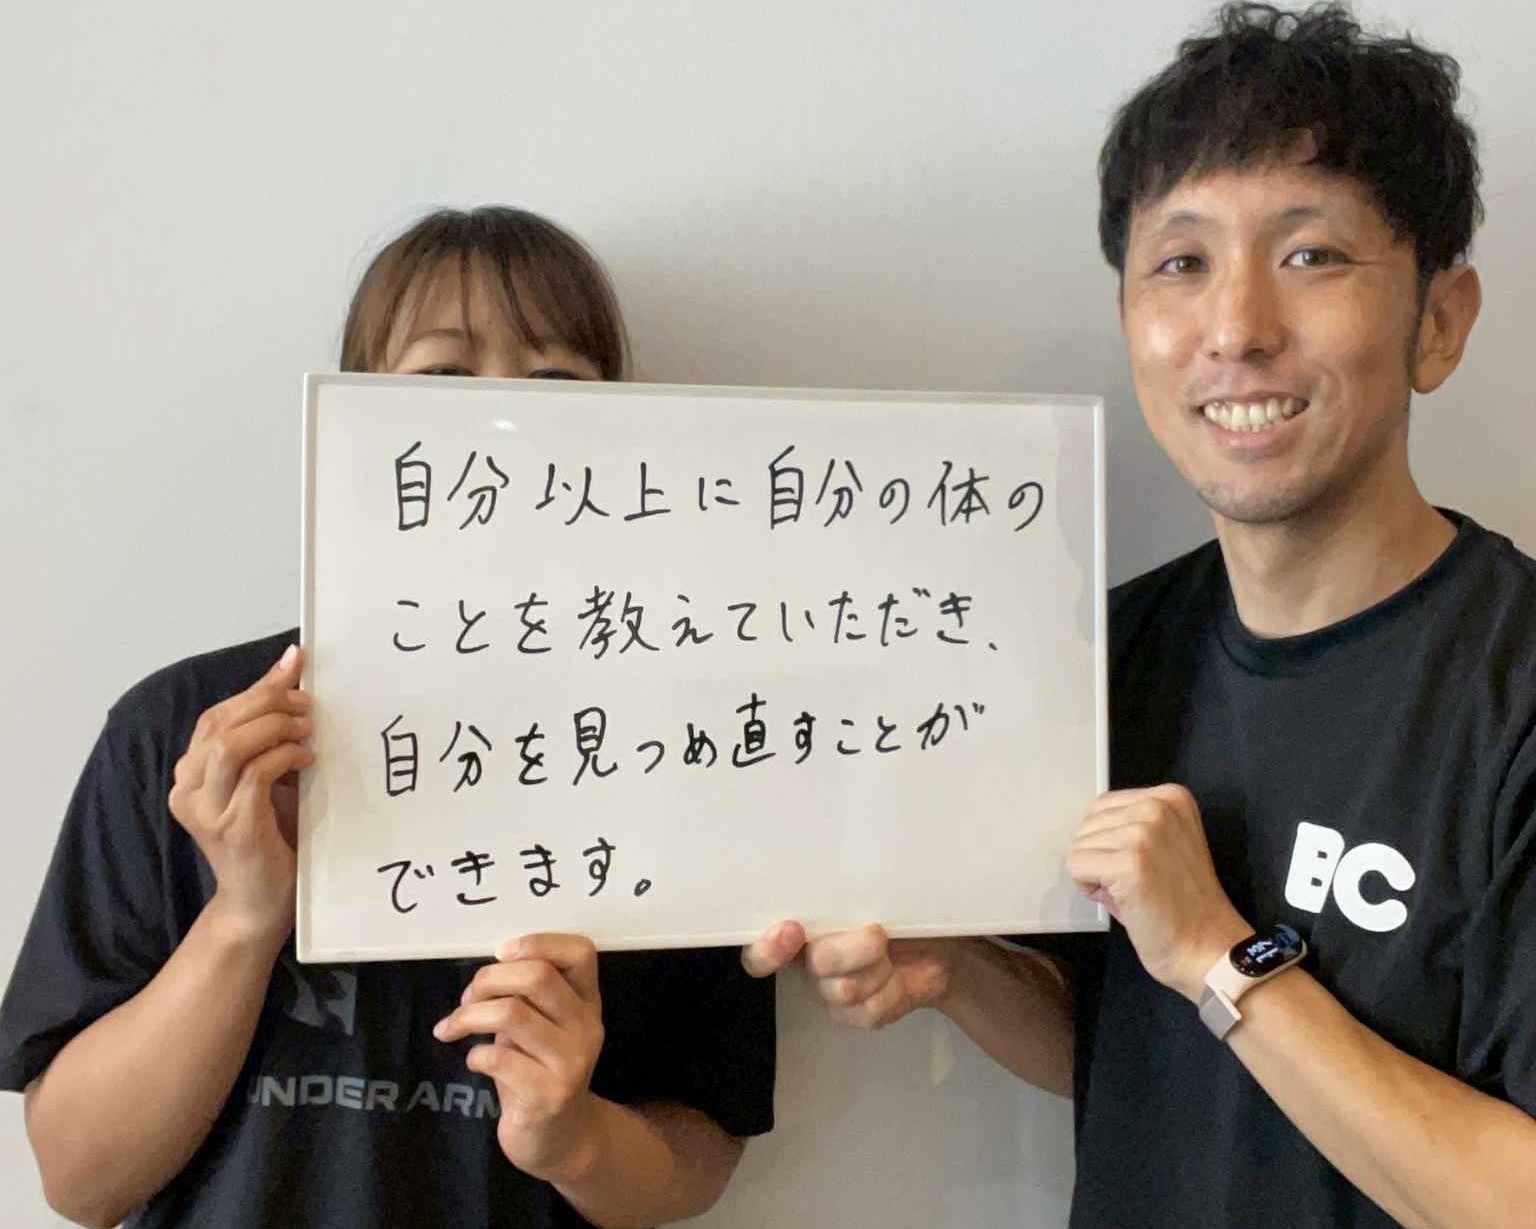 自分以上に自分の体の
ことを教えていただき、
自分を見つめ直すことが
できます。
BC
UNDER ARM